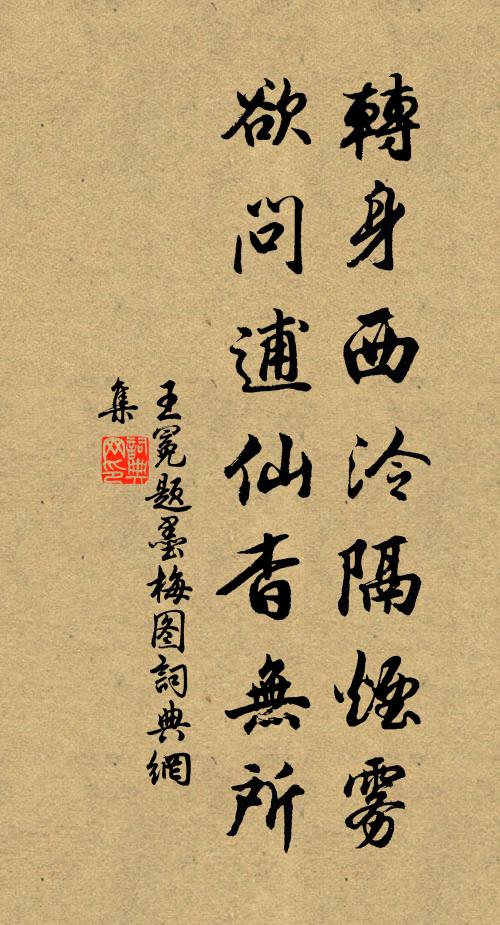 轉身西泠隔煙雾
欲問逋仙杳無所
王冕题墨梅图詞典網
集
詞典
网印